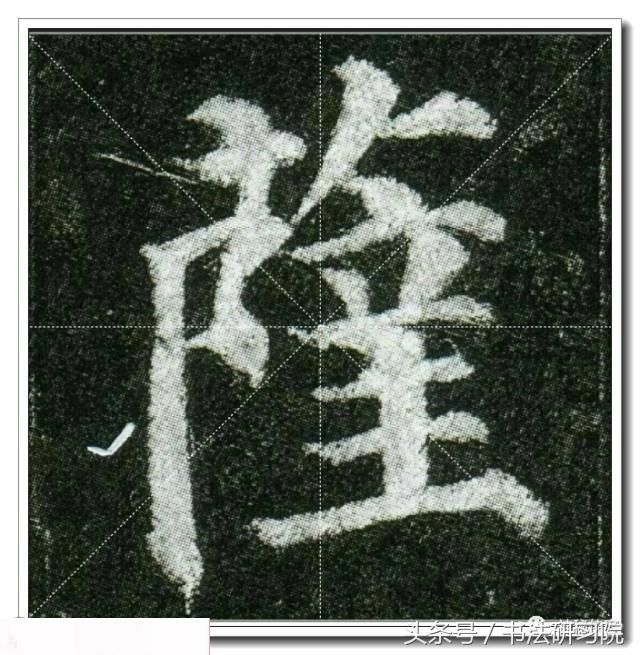 隆
头条号 / 书法研习院